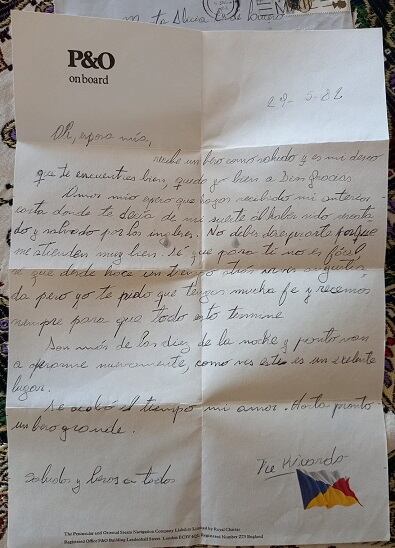 P&O
on board
29-5-82
Oh, esposa mía,
recibe un beso como saludo y es mi deseo
que te encuentres bien, quedo yo bien a Dios gracias
Amor mío espero que hayas recibido mi anterior
carta donde te decía de mi suerte al haber sido
do y salvado por los ingleses. No debes preocuparte porque
me atienden muy bien. Sé que para ti no es fácil
sé que desde hace un tiempo atrás vives angustia
da pero yo te pido que tengas mucha fe y recemos
siempre para que todo esto termine
Son más de las diez de la noche y pronto van
a operarme nuevamente, como ves este es un exelente
lugar.
Se acabó el tiempo mi amor. Hasta pronto
un beso grande.
Tu Ricardo
Saludos y besos a todos
The Peninsular and Oriental Steam Navigation Company Limited by Royal Charter
Registered Office P&O Building Leadenhall Street London EC3V 4QL Registered Number Z73 England